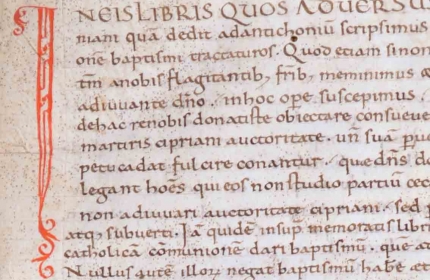 INEIS LIBRIS QUOS ADVERSU
niam quā dedit adantichoniū scripsimus
onē baptismi tractaturos. Quod etiam sinon
tm̄ anobis flagitantib; frīb; meminimus
adiuuante dn̄o. inhoc ope suscepimus
dehac renobis donatiste obiectare consueue
martiris cipriani auctoritate. un̄ suā
petu cadat fulcire conantur. que dn̄s
legant hoēs qui eos non studio partiū cec
non adiuuari auctoritate cipriani. sed
atq; subuerti. Iā quidē insup memoratis lib
catholicā cōmunionē dari baptismū. que
Nullus autē illoꝝ negat baptismū habē